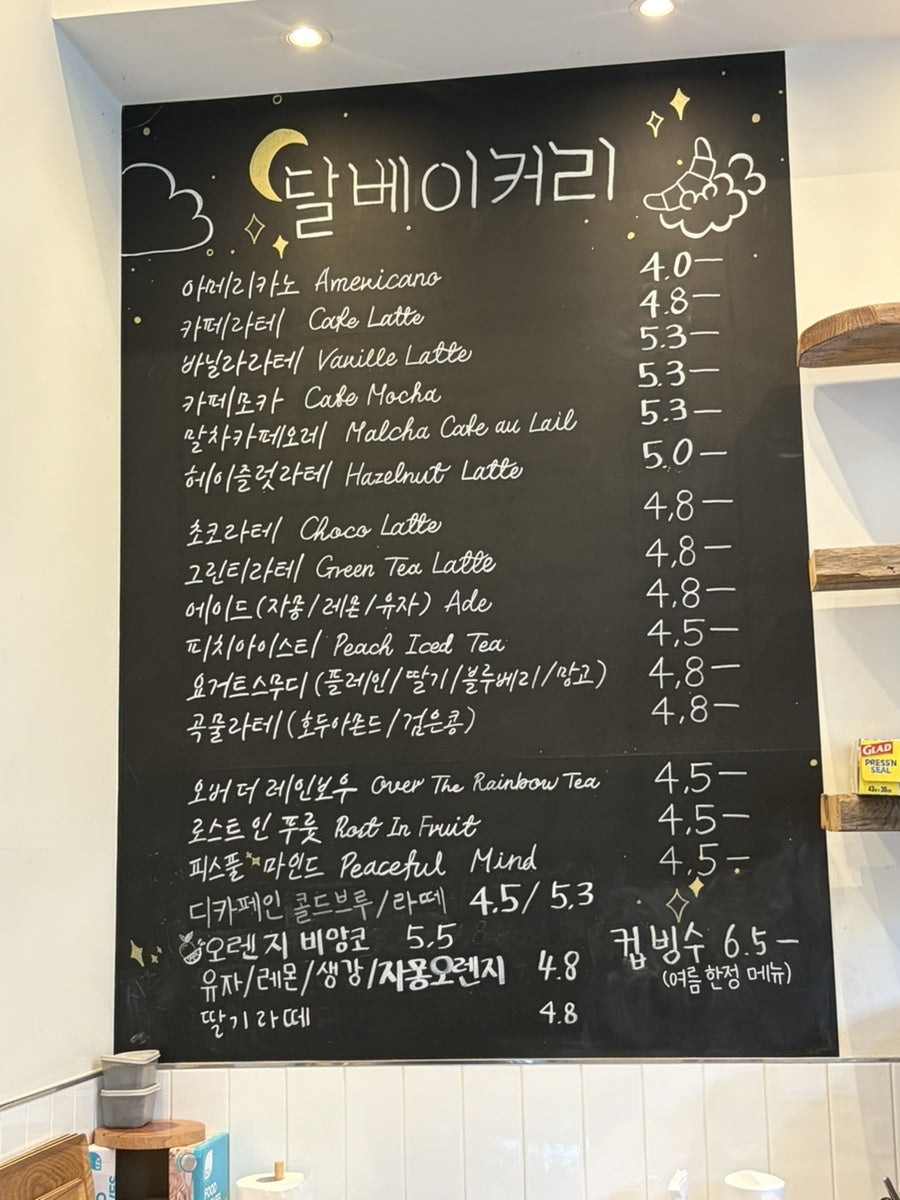 달베이커리
아메리카노 Americano 4.0—
카페라테 Cafe Latte 4.8—
바닐라라테 Vanille Latte 5.3—
카페모카 Cafe Mocha 5.3—
말차카페오레 Malcha Cafe au Lail 5.3—
헤이즐럿라테 Hazelnut Latte 5.0—
초코라테 Choco Latte 4,8—
그린티라테 Green Tea Latte 4,8—
에이드(자몽/레몬/유자) Ade 4,8—
피치아이스티 Peach Iced Tea 4,5—
요거트스무디(플레인/딸기/블루베리/망고) 4,8—
곡물라테(호두아몬드/검은콩) 4,8—
오버 더 레인보우 Over The Rainbow Tea 4,5—
로스트 인 푸룻 Rost In Fruit 4,5—
피스풀 마인드 Peaceful Mind 4,5—
디카페인 콜드브루/라떼 4.5/5.3
오렌지 비앙코 5.5
컵빙수 6.5—
(여름 한정 메뉴)
유자/레몬/생강/자몽오렌지 4.8
딸기라떼 4.8
GLAD
PRESS'N
SEAL